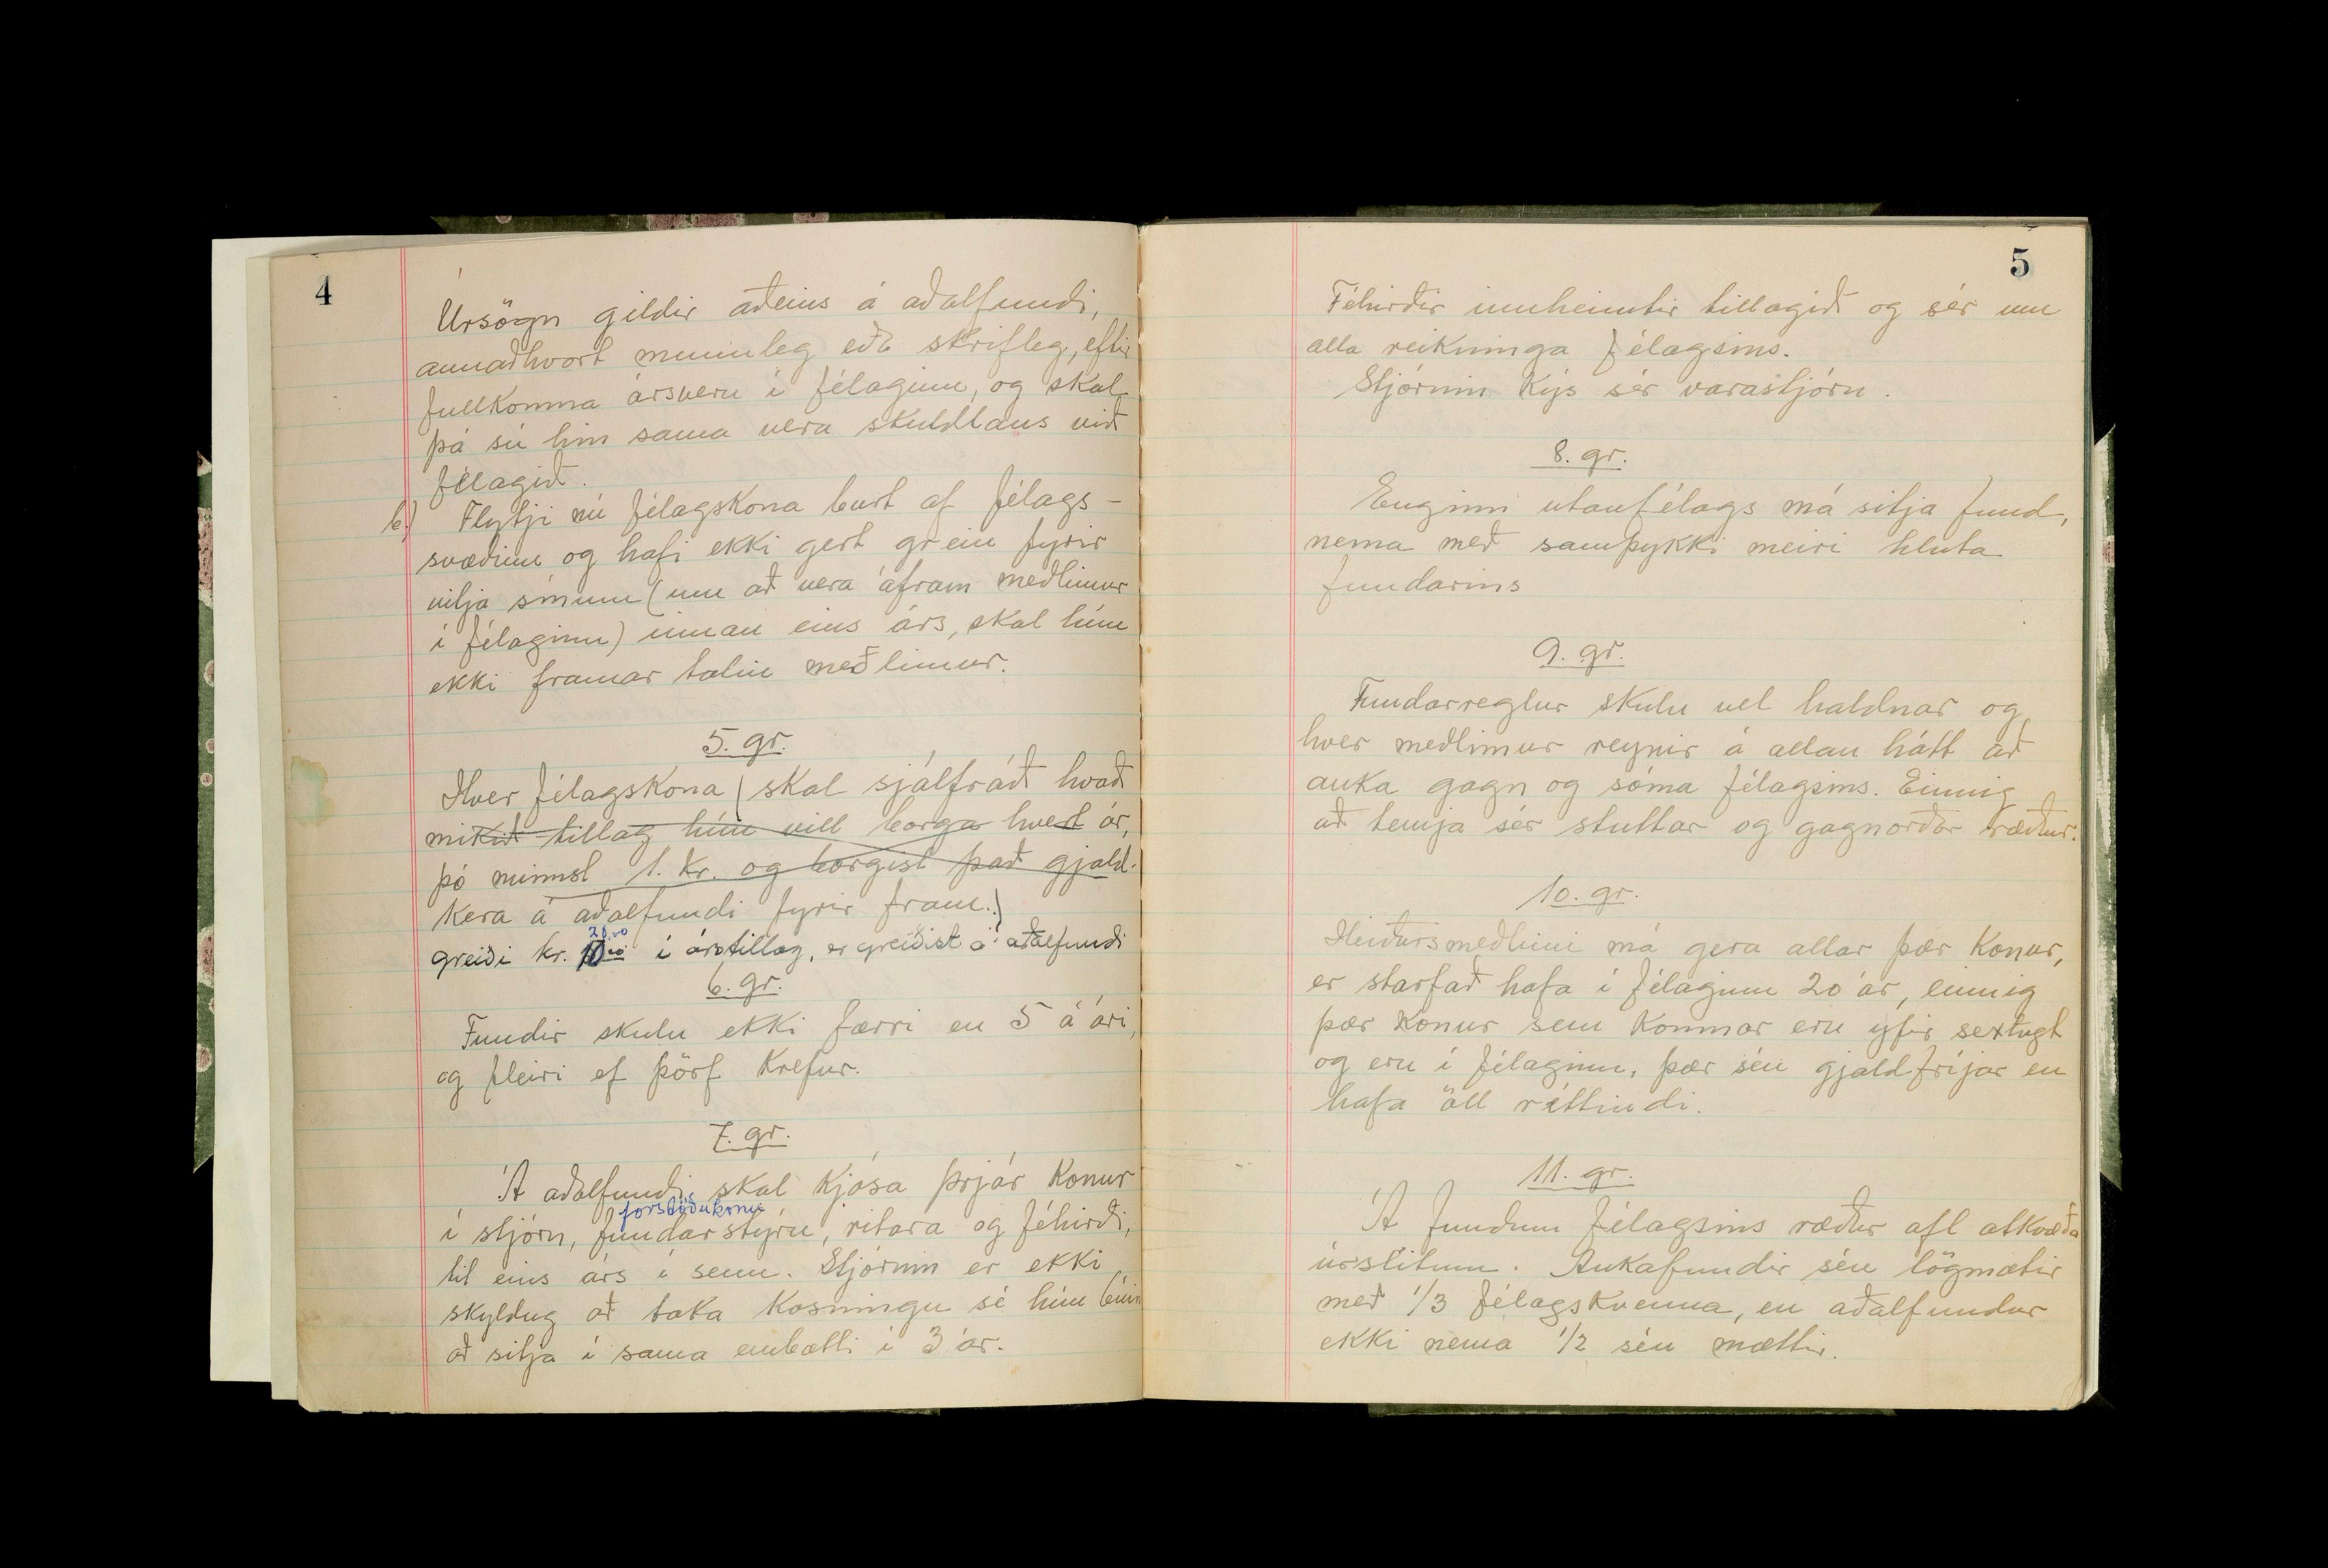 4
Úrsögn gildir aðeins á aðalfundi,
annaðhvort munnleg eða skrifleg, eftir
fullkomna ársveru í félaginu, og skal
þá sú hin sama vera skuldlaus við
félagið.
b.) Flytji nú félagskona burt af félags-
svæðinu og hafi ekki gert grein fyrir
vilja sínum (um að vera áfram meðlimur
í félaginu) innan eins árs, skal hún
ekki framar talin meðlimur.
5. gr.
Hver félagskona (skal sjálfráð hvað
mikið tillag hún vill borga hvert ár,
þó minnst 1. kr. og borgist það gjald-
kera á aðalfundi fyrir fram.)
20.00
greiði kr. 10.00 í árstillag, er greiðist á aðalfundi
6. gr.
Fundir skulu ekki færri en 5 á ári,
og fleiri ef þörf krefur.
7. gr.
Á aðalfundi skal kjósa þrjár konur
forstöðukonu
í stjórn, fundarstýru, ritara og féhirði,
til eins árs í senn. Stjórnin er ekki
skyldug að taka kosningu sé hún búin
að sitja í sama embætti í 3 ár.
5
Féhirðir innheimtir tillagið og sér um
alla reikninga félagsins.
Stjórnin kýs sér varastjórn.
8. gr.
Enginn utanfélags má sitja fund,
nema með samþykki meiri hluta
fundarins
9. gr.
Fundarreglur skulu vel haldnar og
hver meðlimur reynir á allan hátt að
auka gagn og sóma félagsins. Einnig
að temja sér stuttar og gagnorðar ræður.
10. gr.
Heiðursmeðlimi má gera allar þær konur,
er starfað hafa í félaginu 20 ár, einnig
þær konur sem komnar eru yfir sextugt
og eru í félaginu, þær séu gjaldfríjar en
hafa öll réttindi.
11. gr.
Á fundum félagsins ræður afl atkvæða
úrslitum. Aukafundir séu lögmætir
með 1/3 félagskvenna, en aðalfundur
ekki nema 1/2 séu mættir.